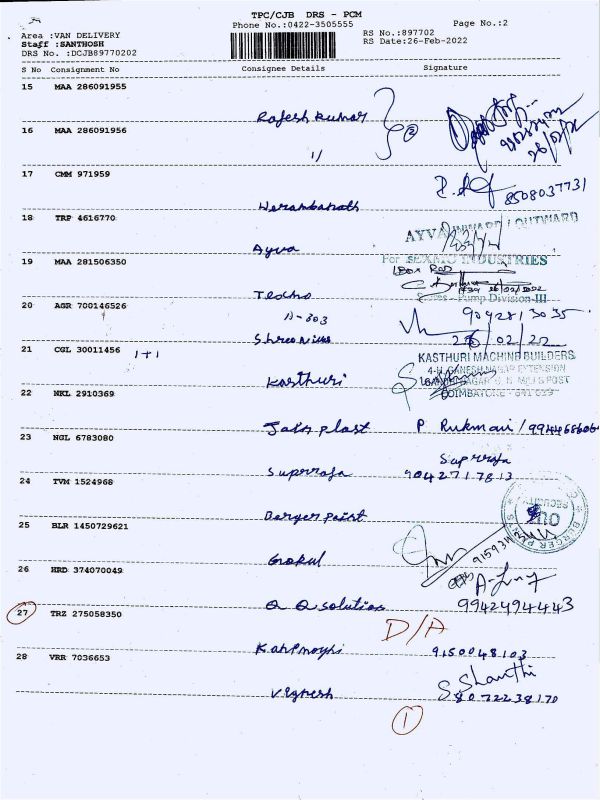 TPC/CJB DRS - PCM
Phone No.:0422-3505555
Page No.:2
Area :VAN DELIVERY
Staff :SANTHOSH
DRS No. :DCJB89770202
RS No.:897702
RS Date:26-Feb-2022
S No Consignment No Consignee Details Signature
15 MAA 286091955
Rajesh kumar
2
16 MAA 286091956
26/02/22
17 CMM 971959
8508037731
18 TRP 4616770
AYVA INWARD / OUTWARD
Ayva
For SEXMO INDUSTRIES
19 MAA 281506350
1 Box
Stores - Pump Division-III
Techno
20 AGR 700146526
A-303
9042813035
26/02/22
21 CGL 30011456 1+1
KASTHURI MACHINE BUILDERS
4-H, GANESH NAGAR EXTENSION
POST
COIMBATORE - 641 029
Kasthuri
22 NKL 2910369
Jain plast
P Rukmani /
23 NGL 6783080
Supraja
Supraja
9042717813
24 TVM 1524968
Berger paint
BERGER PAINTS
SECURITY
OUT
25 BLR 1450729621
Gokul
26 HRD 374070049
Q Q solution
9942494443
27 TRZ 275058350
D/A
9150048103
28 VRR 7036653
S. Shanthi
Vignesh
8072238170
1